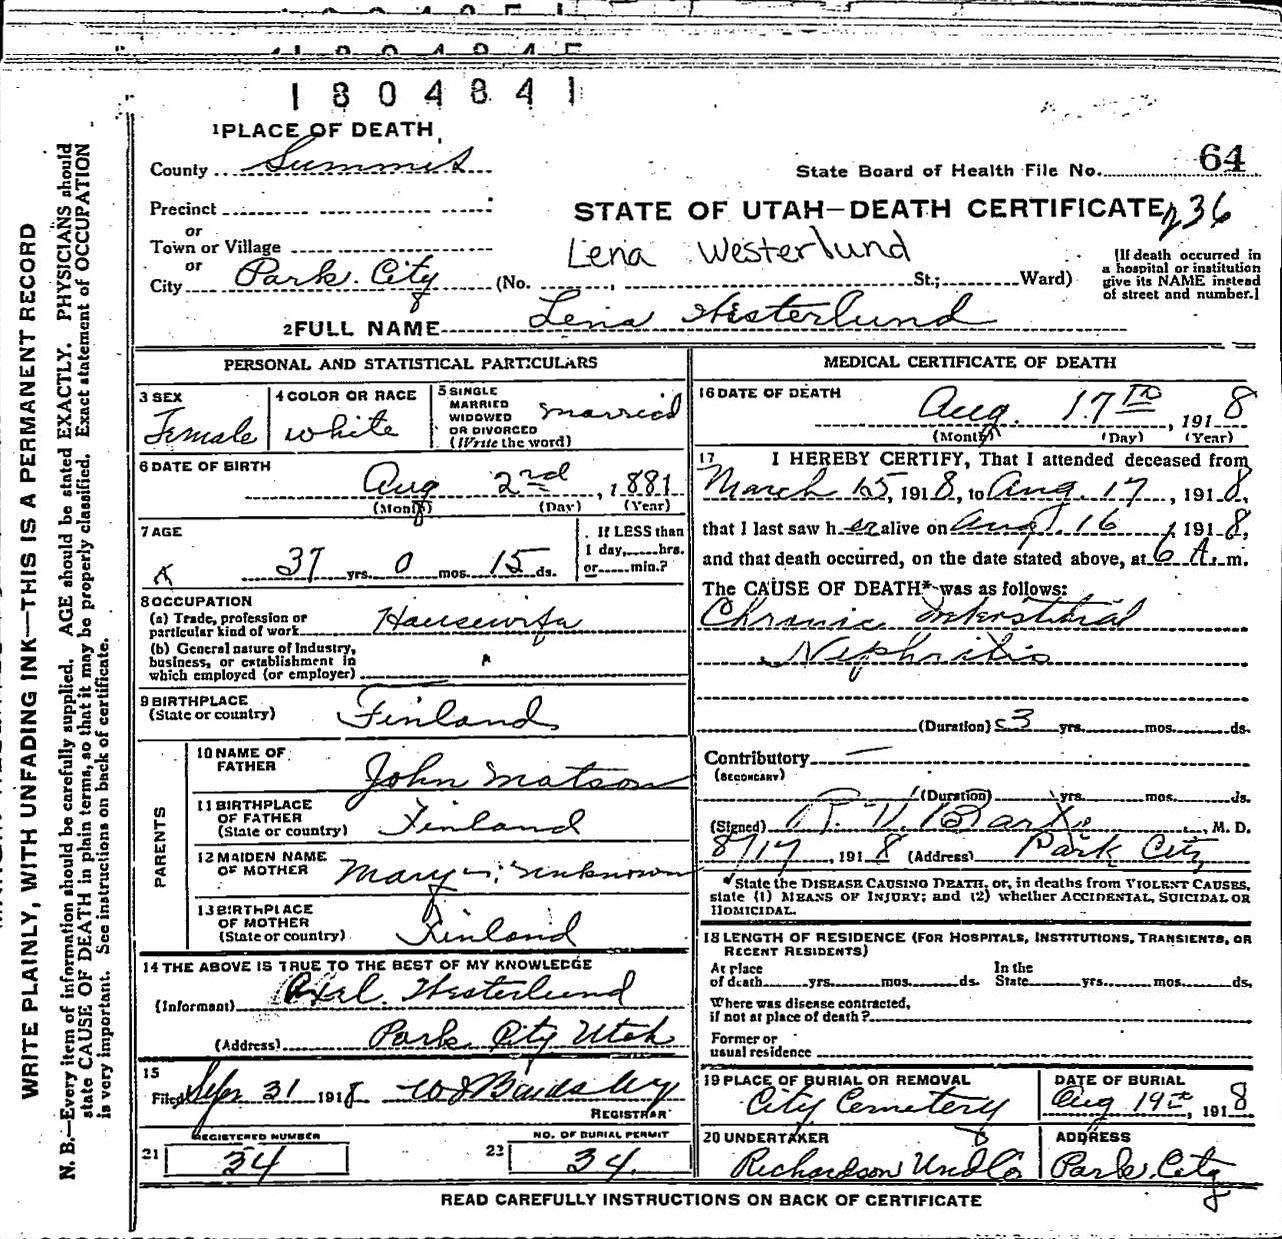 1804841
1 PLACE OF DEATH
County Summit
State Board of Health File No. 64
Precinct
or
STATE OF UTAH—DEATH CERTIFICATE 236
Town or Village
or
Lena Westerlund
City Park City (No. , St.; Ward)
[If death occurred in
a hospital or institution
give its NAME instead
of street and number.]
2 FULL NAME Lena Westerlund
PERSONAL AND STATISTICAL PARTICULARS
3 SEX
Female
4 COLOR OR RACE
White
5 SINGLE
MARRIED
WIDOWED
OR DIVORCED
(Write the word)
married
6 DATE OF BIRTH
Aug 2nd, 1881
(Month) (Day) (Year)
7 AGE
37 yrs. 0 mos. 15 ds.
If LESS than
1 day, hrs.
or min.?
8 OCCUPATION
(a) Trade, profession or
particular kind of work Housewife
(b) General nature of Industry,
business, or establishment in
which employed (or employer)
9 BIRTHPLACE
(State or country) Finland
PARENTS
10 NAME OF
FATHER John Matson
11 BIRTHPLACE
OF FATHER
(State or country) Finland
12 MAIDEN NAME
OF MOTHER Mary Unknown
13 BIRTHPLACE
OF MOTHER
(State or country) Finland
14 THE ABOVE IS TRUE TO THE BEST OF MY KNOWLEDGE
(Informant) Axel Westerlund
(Address) Park City Utah
15
Filed Sep. 31 1918
REGISTRAR
REGISTERED NUMBER
21 34
NO. OF BURIAL PERMIT
22 34.
MEDICAL CERTIFICATE OF DEATH
16 DATE OF DEATH
Aug. 17th, 1918
(Month) (Day) (Year)
17 I HEREBY CERTIFY, That I attended deceased from
March 15, 1918, to Aug. 17, 1918,
that I last saw her alive on Aug. 16, 1918,
and that death occurred, on the date stated above, at 6 A. m.
The CAUSE OF DEATH* was as follows:
Chronic Interstitial
Nephritis
(Duration) 3 yrs. mos. ds.
Contributory —
(SECONDARY)
(Duration) yrs. mos. ds.
(Signed) R. V. M. D.
8/17, 1918 (Address) Park City
*State the DISEASE CAUSING DEATH, or, in deaths from VIOLENT CAUSES,
state (1) MEANS OF INJURY; and (2) whether ACCIDENTAL, SUICIDAL OR
HOMICIDAL.
18 LENGTH OF RESIDENCE (FOR HOSPITALS, INSTITUTIONS, TRANSIENTS, OR
RECENT RESIDENTS)
At place
of death yrs. mos. ds.
In the
State yrs. mos. ds.
Where was disease contracted,
if not at place of death?
Former or
usual residence
19 PLACE OF BURIAL OR REMOVAL
City Cemetery
DATE OF BURIAL
Aug 19th, 1918
20 UNDERTAKER
Richardson Und Co
ADDRESS
Park City
READ CAREFULLY INSTRUCTIONS ON BACK OF CERTIFICATE
WRITE PLAINLY, WITH UNFADING INK—THIS IS A PERMANENT RECORD
N. B.—Every item of information should be carefully supplied. AGE should be stated EXACTLY. PHYSICIANS should
state CAUSE OF DEATH in plain terms, so that it may be properly classified. Exact statement of OCCUPATION
is very important. See instructions on back of certificate.